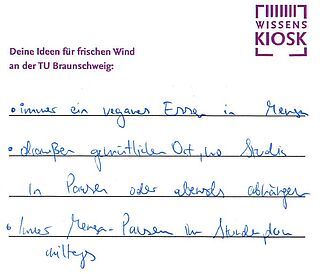 WISSENS
KIOSK
Deine Ideen für frischen Wind
an der TU Braunschweig:
• immer ein veganes Essen in Mensa
• draußen gemütlichen Ort, wo Studis
in Pausen oder abends abhängen
• Immer Mensa-Pausen im Stundenplan
mittags